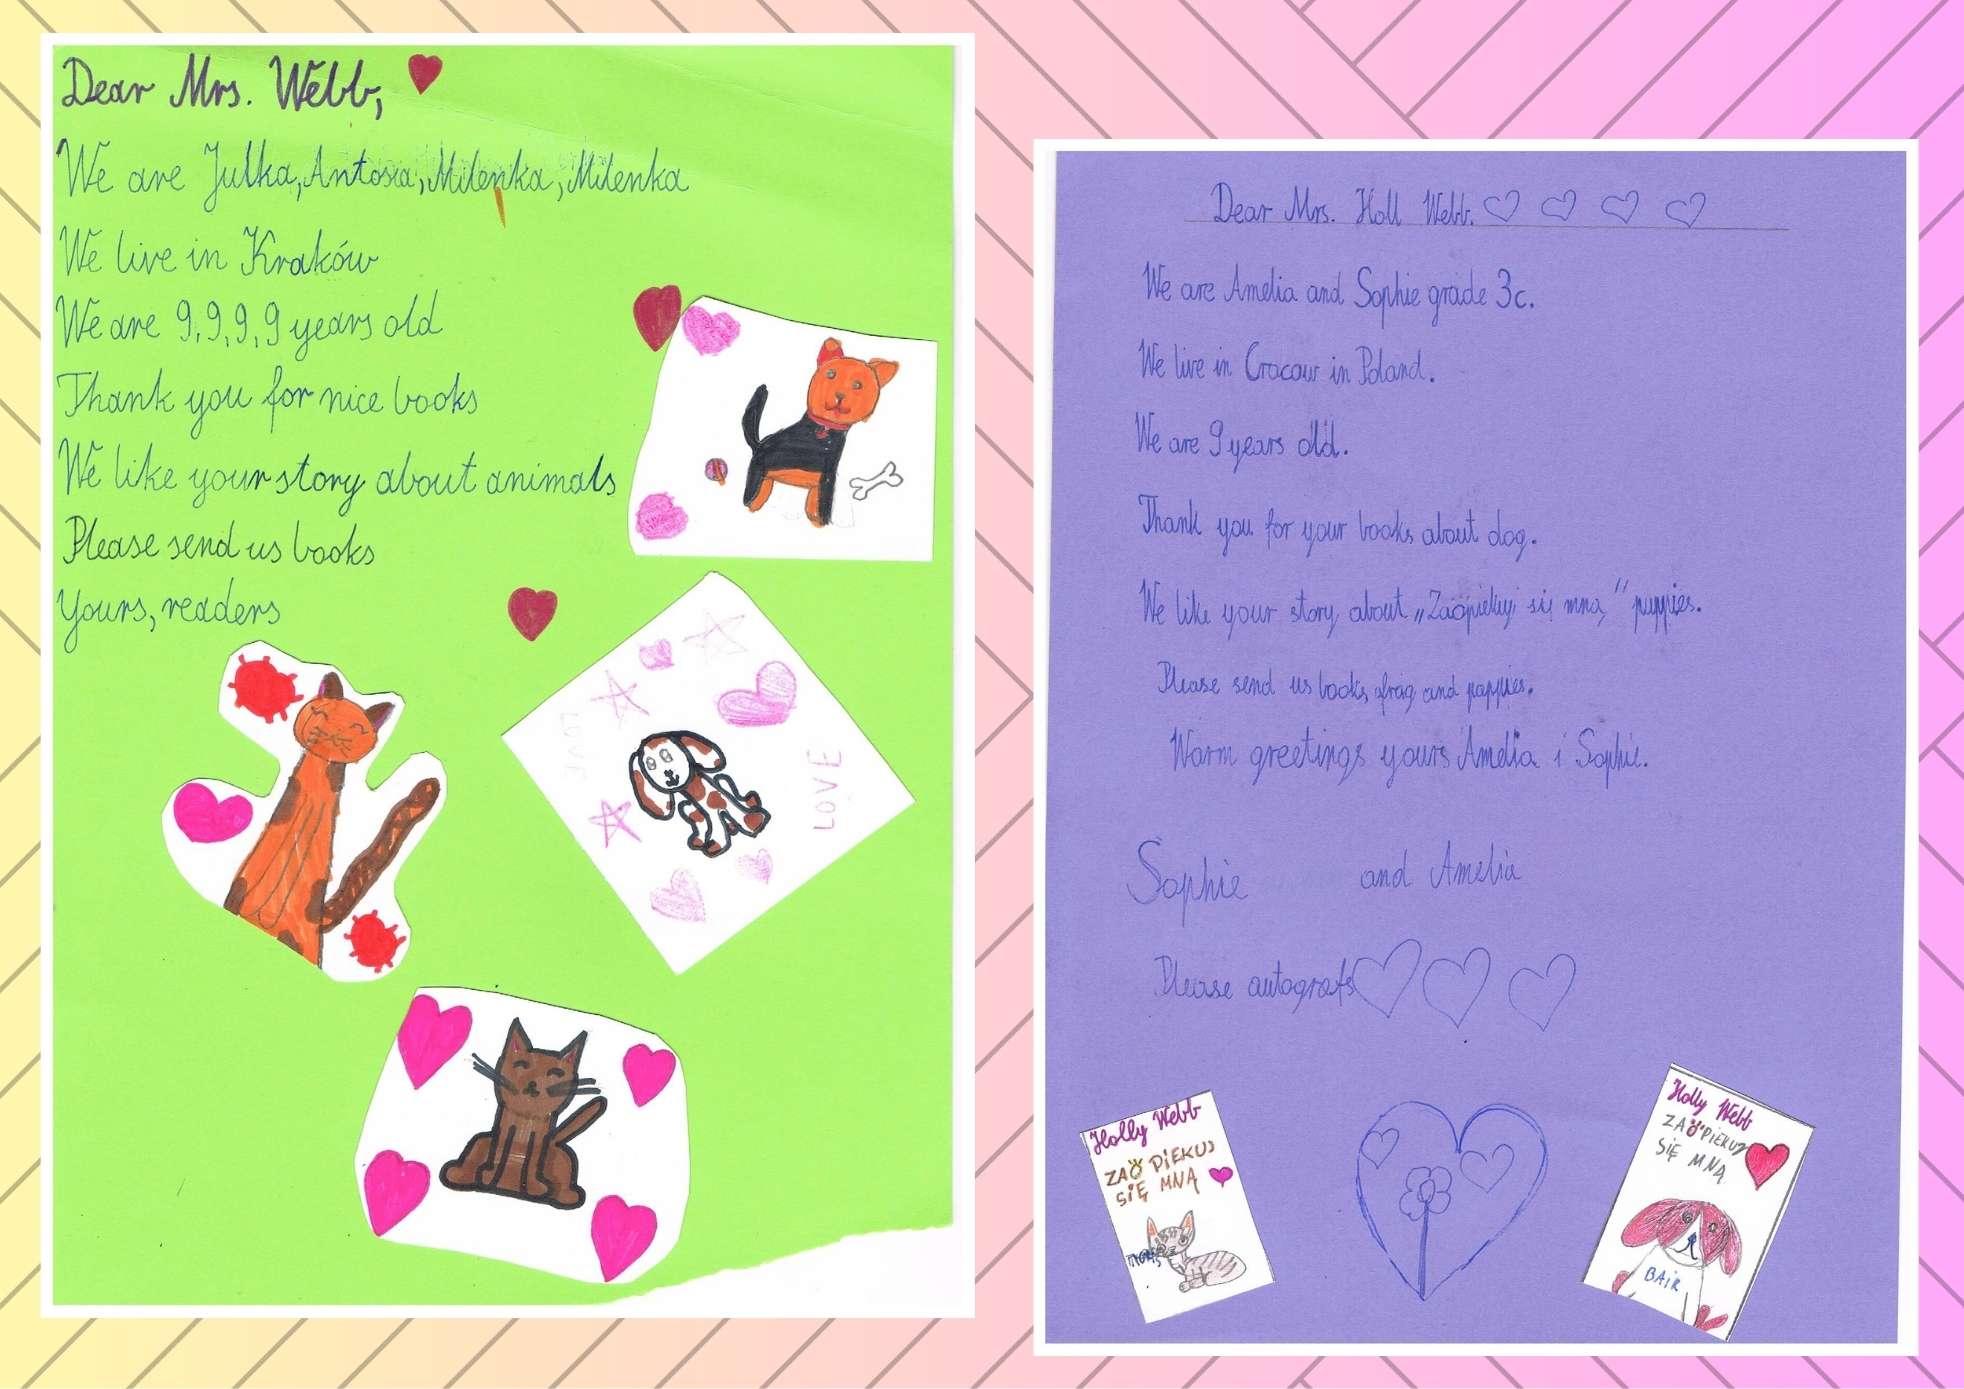 Dear Mrs. Webb,
We are Julka, Antosia, Milenka, Milenka
We live in Kraków
We are 9, 9, 9, 9 years old
Thank you for nice books
We like your story about animals
Please send us books
Yours, readers
LOVE
LOVE
Dear Mrs. Holl Webb.
We are Amelia and Sophie grade 3c.
We live in Cracow in Poland.
We are 9 years old.
Thank you for your books about dog.
We like your story about „Zaopiekuj się mną" puppies.
Please send us books and puppies.
Warm greetings yours Amelia i Sophie.
Sophie and Amelia
Please autografs
Holly Webb
ZAOPIEKUJ
SIĘ MNĄ
Holly Webb
ZAOPIEKUJ
SIĘ MNĄ
BAIR